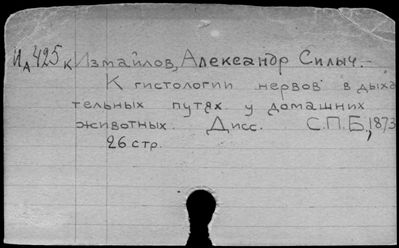 ИА425К Измайлов, Александр Силыч.-
К гистологии нервов в дыха
тельных путях у домашних
животных. Дисс. С.П.Б, 1873
26 стр.